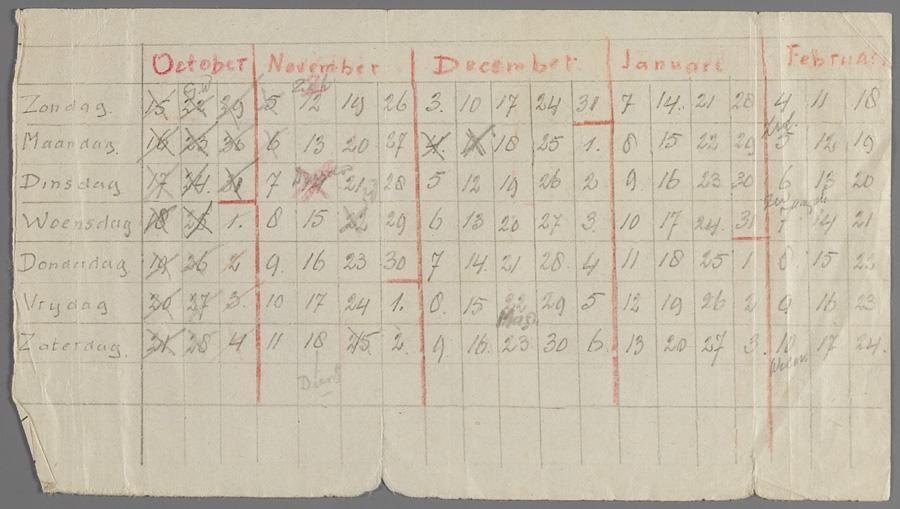 October November December Januari Februari
Zondag 15 22 29 5 12 19 26 3. 10 17 24 31 7 14. 21 28 4 11 18
Maandag. 16 23 30 6 13 20 27 4. 11 18 25 1. 8 15 22 29 5 12 19
Dinsdag 17 24. 31 7 14 21 28 5 12 19 26 2 9. 16 23 30 6 13 20
Woensdag 18 25 1. 8 15 22 29 6 13 20 27 3. 10 17 24. 31 7 14 21
Donderdag 19 26 2 9. 16 23 30 7 14. 21 28. 4 11 18 25 1 8 15 22
Vrijdag 20 27 3. 10 17 24 1. 8. 15 22 29 5 12 19 26 2 9 16 23
Zaterdag. 21 28 4 11 18 25. 2. 9 16. 23 30 6. 13 20 27 3. 10 17 24.
Dienst